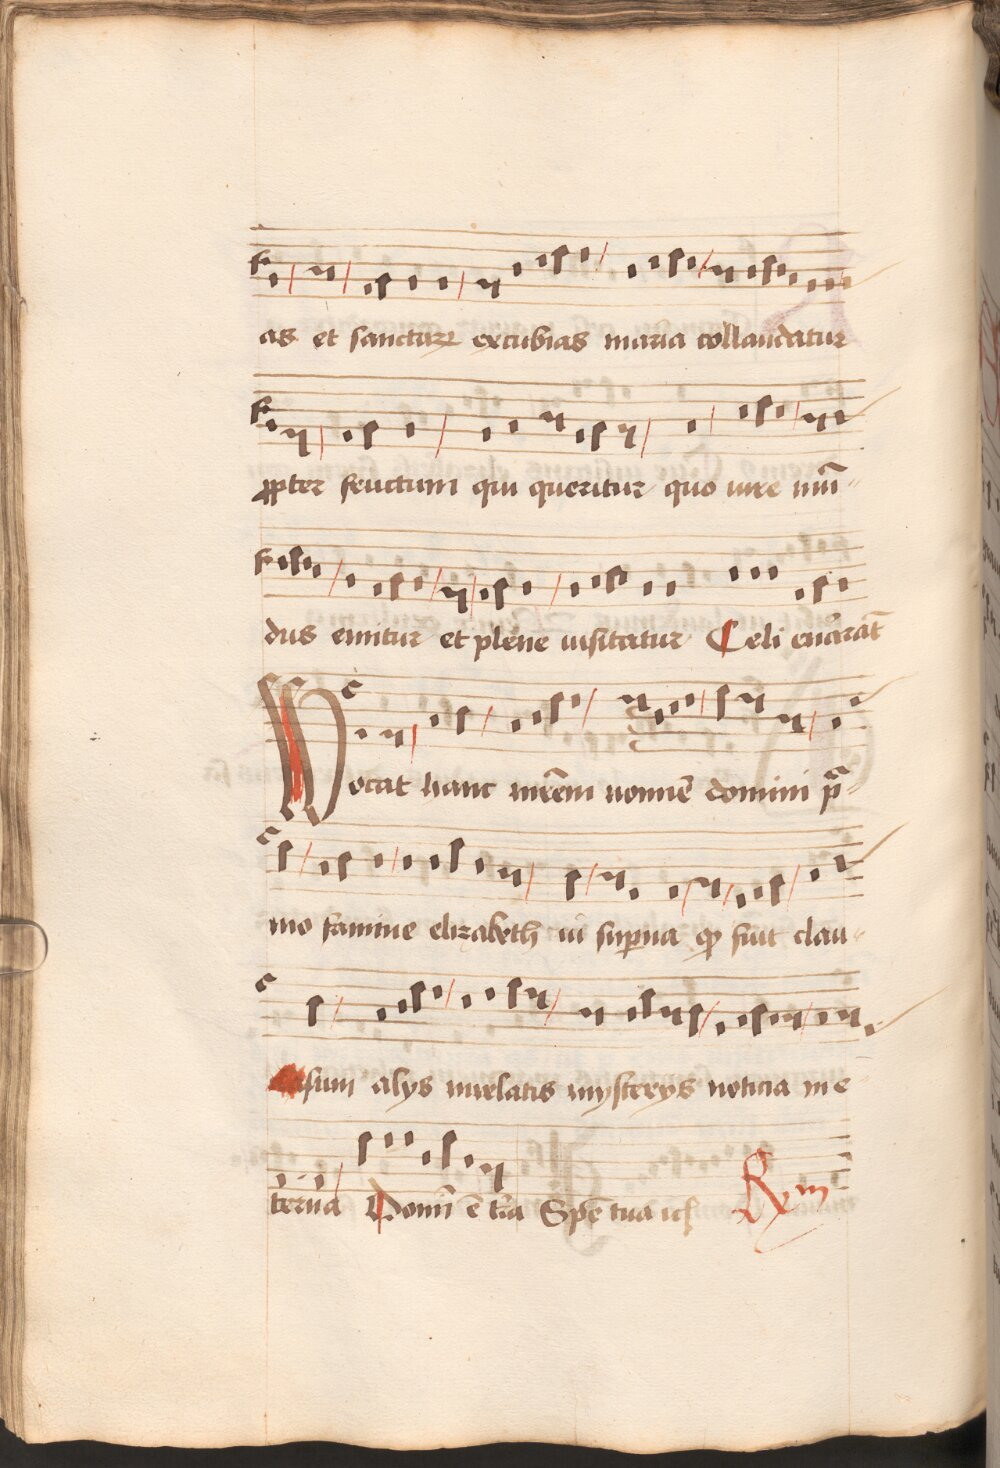 as et sanctaru excubias maria collaudatur
ppter fructum qui queritur quo iure mū-
dus ennitur et plene uisitatur Celi enarrāt
Vocat hanc mrēm nomīe domini pͣ-
mo famine elizabeth in supna qȝ fuit clau-
sum alys reuelatis mysterys noticia me
terna Domī ē tra Spē tua ief Rm